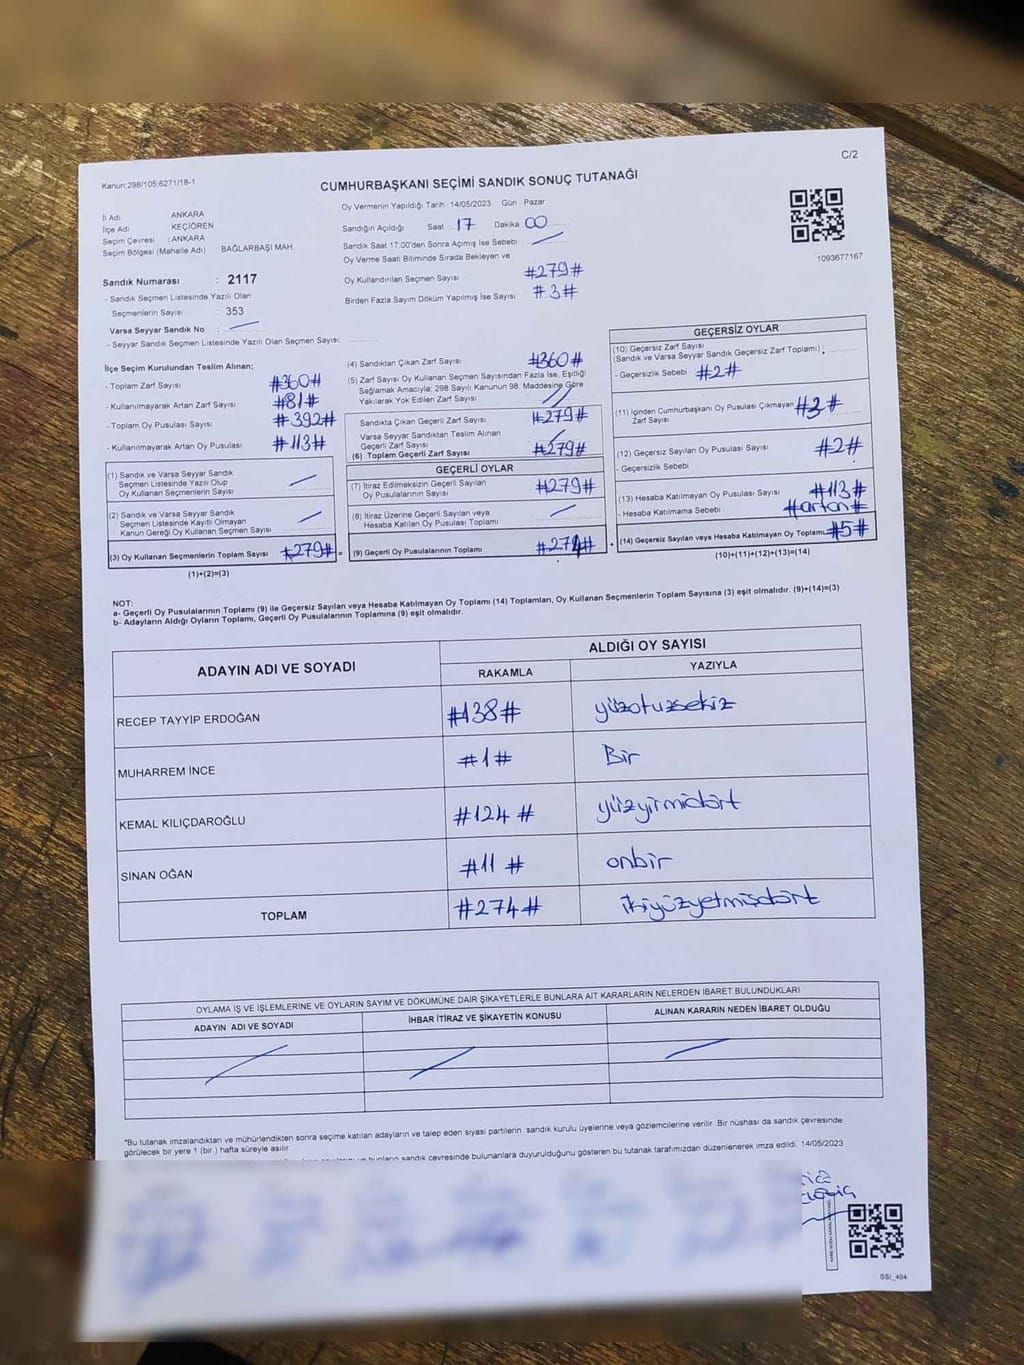 Kanun;298/105;6271/18-1
C/2
CUMHURBAŞKANI SEÇİMİ SANDIK SONUÇ TUTANAĞI
İl Adı ANKARA
İlçe Adı KEÇİÖREN
Seçim Çevresi : ANKARA
Seçim Bölgesi (Mahalle Adı) BAĞLARBAŞI MAH.
Sandık Numarası : 2117
- Sandık Seçmen Listesinde Yazılı Olan
Seçmenlerin Sayısı : 353
Varsa Seyyar Sandık No :
- Seyyar Sandık Seçmen Listesinde Yazılı Olan Seçmen Sayısı:
Oy Vermenin Yapıldığı Tarih : 14/05/2023 Gün : Pazar
Sandığın Açıldığı Saat 17 Dakika 00
Sandık Saat 17:00'den Sonra Açımış İse Sebebi :
Oy Verme Saati Bitiminde Sırada Bekleyen ve
Oy Kullandırılan Seçmen Sayısı : #279#
Birden Fazla Sayım Döküm Yapılmış İse Sayısı : #3#
1093677167
İlçe Seçim Kurulundan Teslim Alınan;
- Toplam Zarf Sayısı #360#
- Kullanılmayarak Artan Zarf Sayısı #81#
- Toplam Oy Pusulası Sayısı #392#
- Kullanılmayarak Artan Oy Pusulası #113#
(1) Sandık ve Varsa Seyyar Sandık
Seçmen Listesinde Yazılı Olup
Oy Kullanan Seçmenlerin Sayısı
(2) Sandık ve Varsa Seyyar Sandık
Seçmen Listesinde Kayıtlı Olmayan
Kanun Gereği Oy Kullanan Seçmen Sayısı
(3) Oy Kullanan Seçmenlerin Toplam Sayısı #279# =
(1)+(2)=(3)
(4) Sandıktan Çıkan Zarf Sayısı #360#
(5) Zarf Sayısı Oy Kullanan Seçmen Sayısından Fazla İse, Eşitliği
Sağlamak Amacıyla; 298 Sayılı Kanunun 98. Maddesine Göre
Yakılarak Yok Edilen Zarf Sayısı
Sandıkta Çıkan Geçerli Zarf Sayısı #279#
Varsa Seyyar Sandıktan Teslim Alınan
Geçerli Zarf Sayısı
(6) Toplam Geçerli Zarf Sayısı #279#
GEÇERLİ OYLAR
(7) İtiraz Edilmeksizin Geçerli Sayılan
Oy Pusulalarının Sayısı #279#
(8) İtiraz Üzerine Geçerli Sayılan veya
Hesaba Katılan Oy Pusulası Toplamı
(9) Geçerli Oy Pusulalarının Toplamı #274# +
GEÇERSİZ OYLAR
(10) Geçersiz Zarf Sayısı
(Sandık ve Varsa Seyyar Sandık Geçersiz Zarf Toplamı)
- Geçersizlik Sebebi #2#
(11) İçinden Cumhurbaşkanı Oy Pusulası Çıkmayan #3#
Zarf Sayısı
(12) Geçersiz Sayılan Oy Pusulası Sayısı #2#
- Geçersizlik Sebebi
(13) Hesaba Katılmayan Oy Pusulası Sayısı #113#
- Hesaba Katılmama Sebebi : #artan#
(14) Geçersiz Sayılan veya Hesaba Katılmayan Oy Toplamı #5#
(10)+(11)+(12)+(13)=(14)
NOT:
a- Geçerli Oy Pusulalarının Toplamı (9) ile Geçersiz Sayılan veya Hesaba Katılmayan Oy Toplamı (14) Toplamları, Oy Kullanan Seçmenlerin Toplam Sayısına (3) eşit olmalıdır. (9)+(14)=(3)
b- Adayların Aldığı Oyların Toplamı, Geçerli Oy Pusulalarının Toplamına (9) eşit olmalıdır.
ADAYIN ADI VE SOYADI
ALDIĞI OY SAYISI
RAKAMLA YAZIYLA
RECEP TAYYİP ERDOĞAN #138# yüzotuzsekiz
MUHARREM İNCE #1# Bir
KEMAL KILIÇDAROĞLU #124# yüzyirmidört
SİNAN OĞAN #11# onbir
TOPLAM #274# ikiyüzyetmişdört
OYLAMA İŞ VE İŞLEMLERİNE VE OYLARIN SAYIM VE DÖKÜMÜNE DAİR ŞİKAYETLERLE BUNLARA AİT KARARLARIN NELERDEN İBARET BULUNDUKLARI
ADAYIN ADI VE SOYADI İHBAR İTİRAZ VE ŞİKAYETİN KONUSU ALINAN KARARIN NEDEN İBARET OLDUĞU
*Bu tutanak imzalandıktan ve mühürlendikten sonra seçime katılan adayların ve talep eden siyasi partilerin sandık kurulu üyelerine veya gözlemcilerine verilir. Bir nüshası da sandık çevresinde
görülecek bir yere 1 (bir ) hafta süreyle asılır.
bunların sandık çevresinde bulunanlara duyurulduğunu gösteren bu tutanak tarafımızdan düzenlenerek imza edildi. 14/05/2023
SSI_404